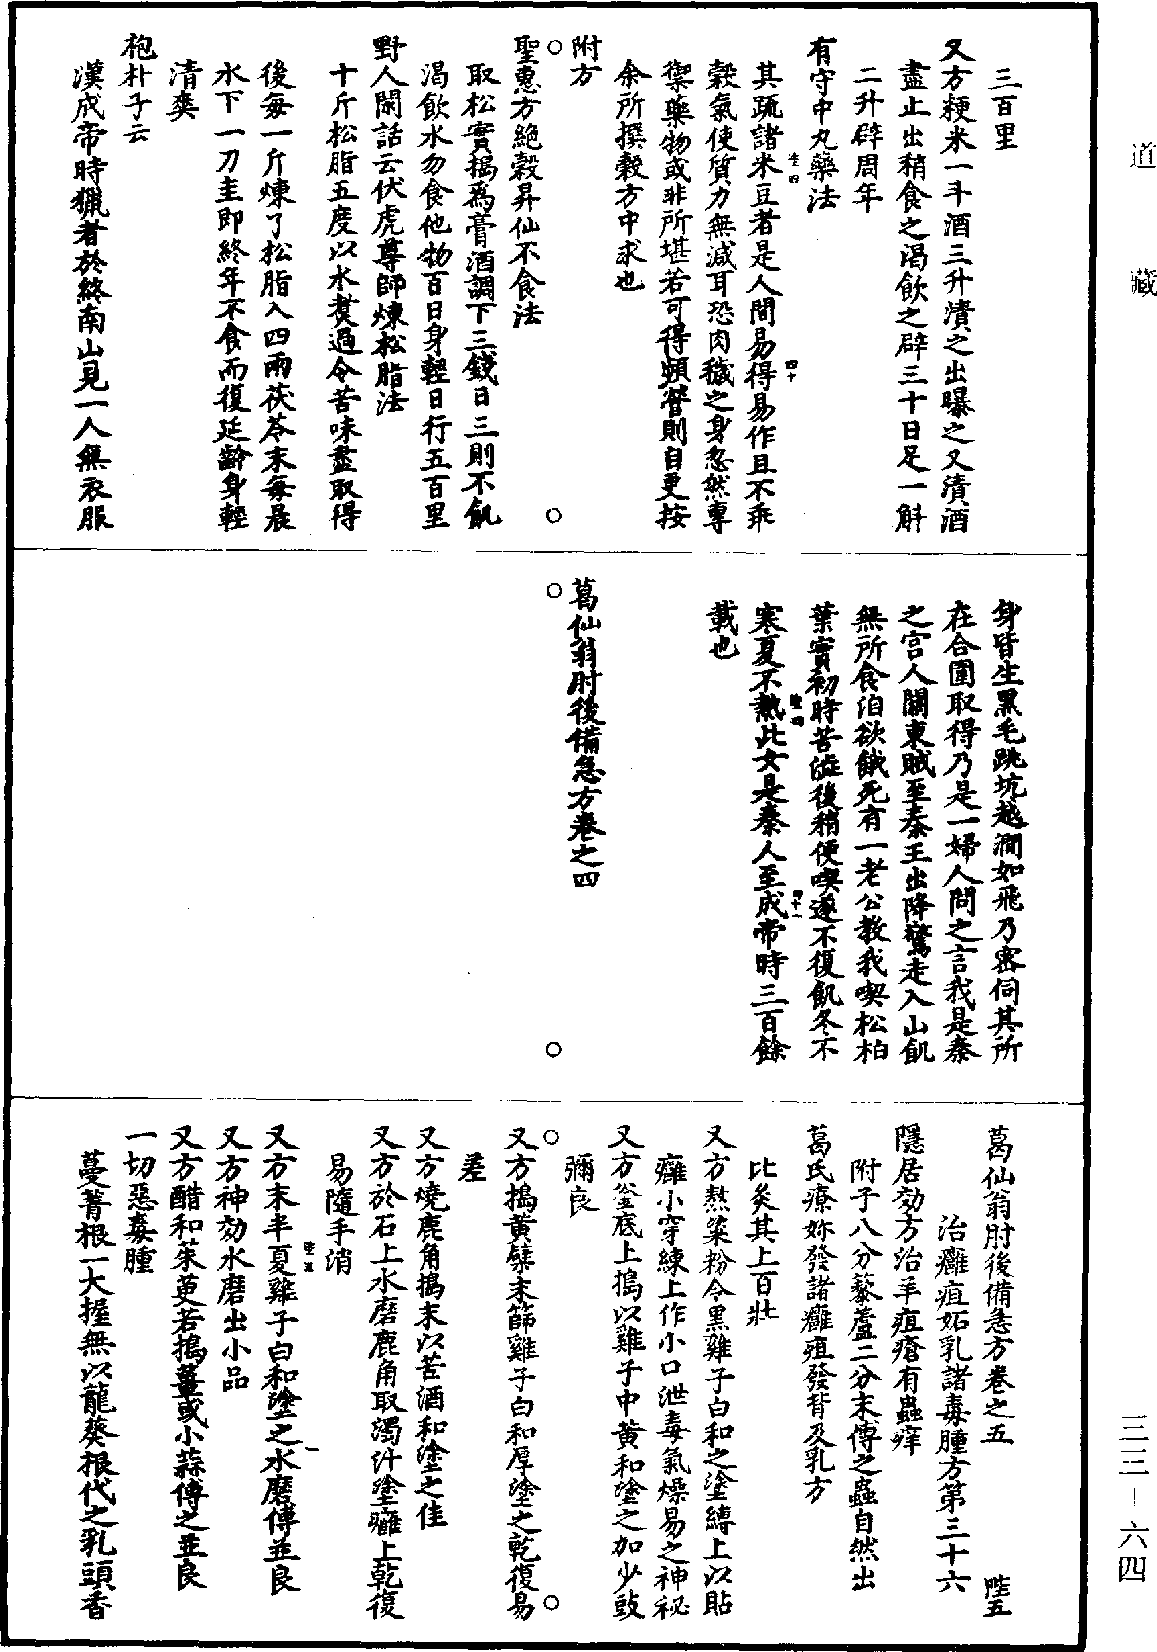 道藏
三三—六四
三百里
又方粳米一斗酒三升漬之出曝之又漬酒
盡止出稍食之渴飲之辟三十日足一斛
二升辟周年
有守中丸藥法
其疏諸米豆者是人間易得易作且不乖
穀氣使質力無減耳恐肉穢之身忽然專
禦藥物或非所堪若可得頻營則自更按
余所撰穀方中求也
附方
聖惠方絕穀昇仙不食法
取松實搗為膏酒調下三錢日三則不飢
渴飲水勿食他物百日身輕日行五百里
野人閑話云伏虎尊師煉松脂法
十斤松脂五度以水煑過令苦味盡取得
後每一斤煉了松脂入四兩茯苓末每晨
水下一刀圭即終年不食而復延齡身輕
清爽
抱朴子云
漢成帝時獵者於終南山見一人無衣服
身皆生黑毛跳坑越澗如飛乃密伺其所
在合圍取得乃是一婦人問之言我是秦
之宮人關東賊至秦王出降驚走入山飢
無所食洎欲餓死有一老公教我喫松柏
葉實初時苦澁後稍便喫遂不復飢冬不
寒夏不熱此女是秦人至成帝時三百餘
載也
葛仙翁肘後備急方卷之四
葛仙翁肘後備急方卷之五 陛五
治癰疽妬乳諸毒腫方第三十六
隱居効方治羊疽瘡有蟲痒
附子八分藜蘆二分末傅之蟲自然出
葛氏療妳發諸癰疽發背及乳方
比灸其上百壯
又方熬粢粉令黑雞子白和之塗縳上以貼
癰小穿練上作小口泄毒氣燥易之神祕
又方釜底上搗以雞子中黃和塗之加少豉
彌良
又方搗黃蘗末篩雞子白和厚塗之乾復易
差
又方燒鹿角搗末以苦酒和塗之佳
又方於石上水磨鹿角取濁汁塗癰上乾復
易隨手消
又方末半夏雞子白和塗之水磨傅並良
又方神効水磨出小品
又方醋和茱萸若搗薑或小蒜傅之並良
一切惡毒腫
蔓菁根一大握無以龍葵根代之乳頭香